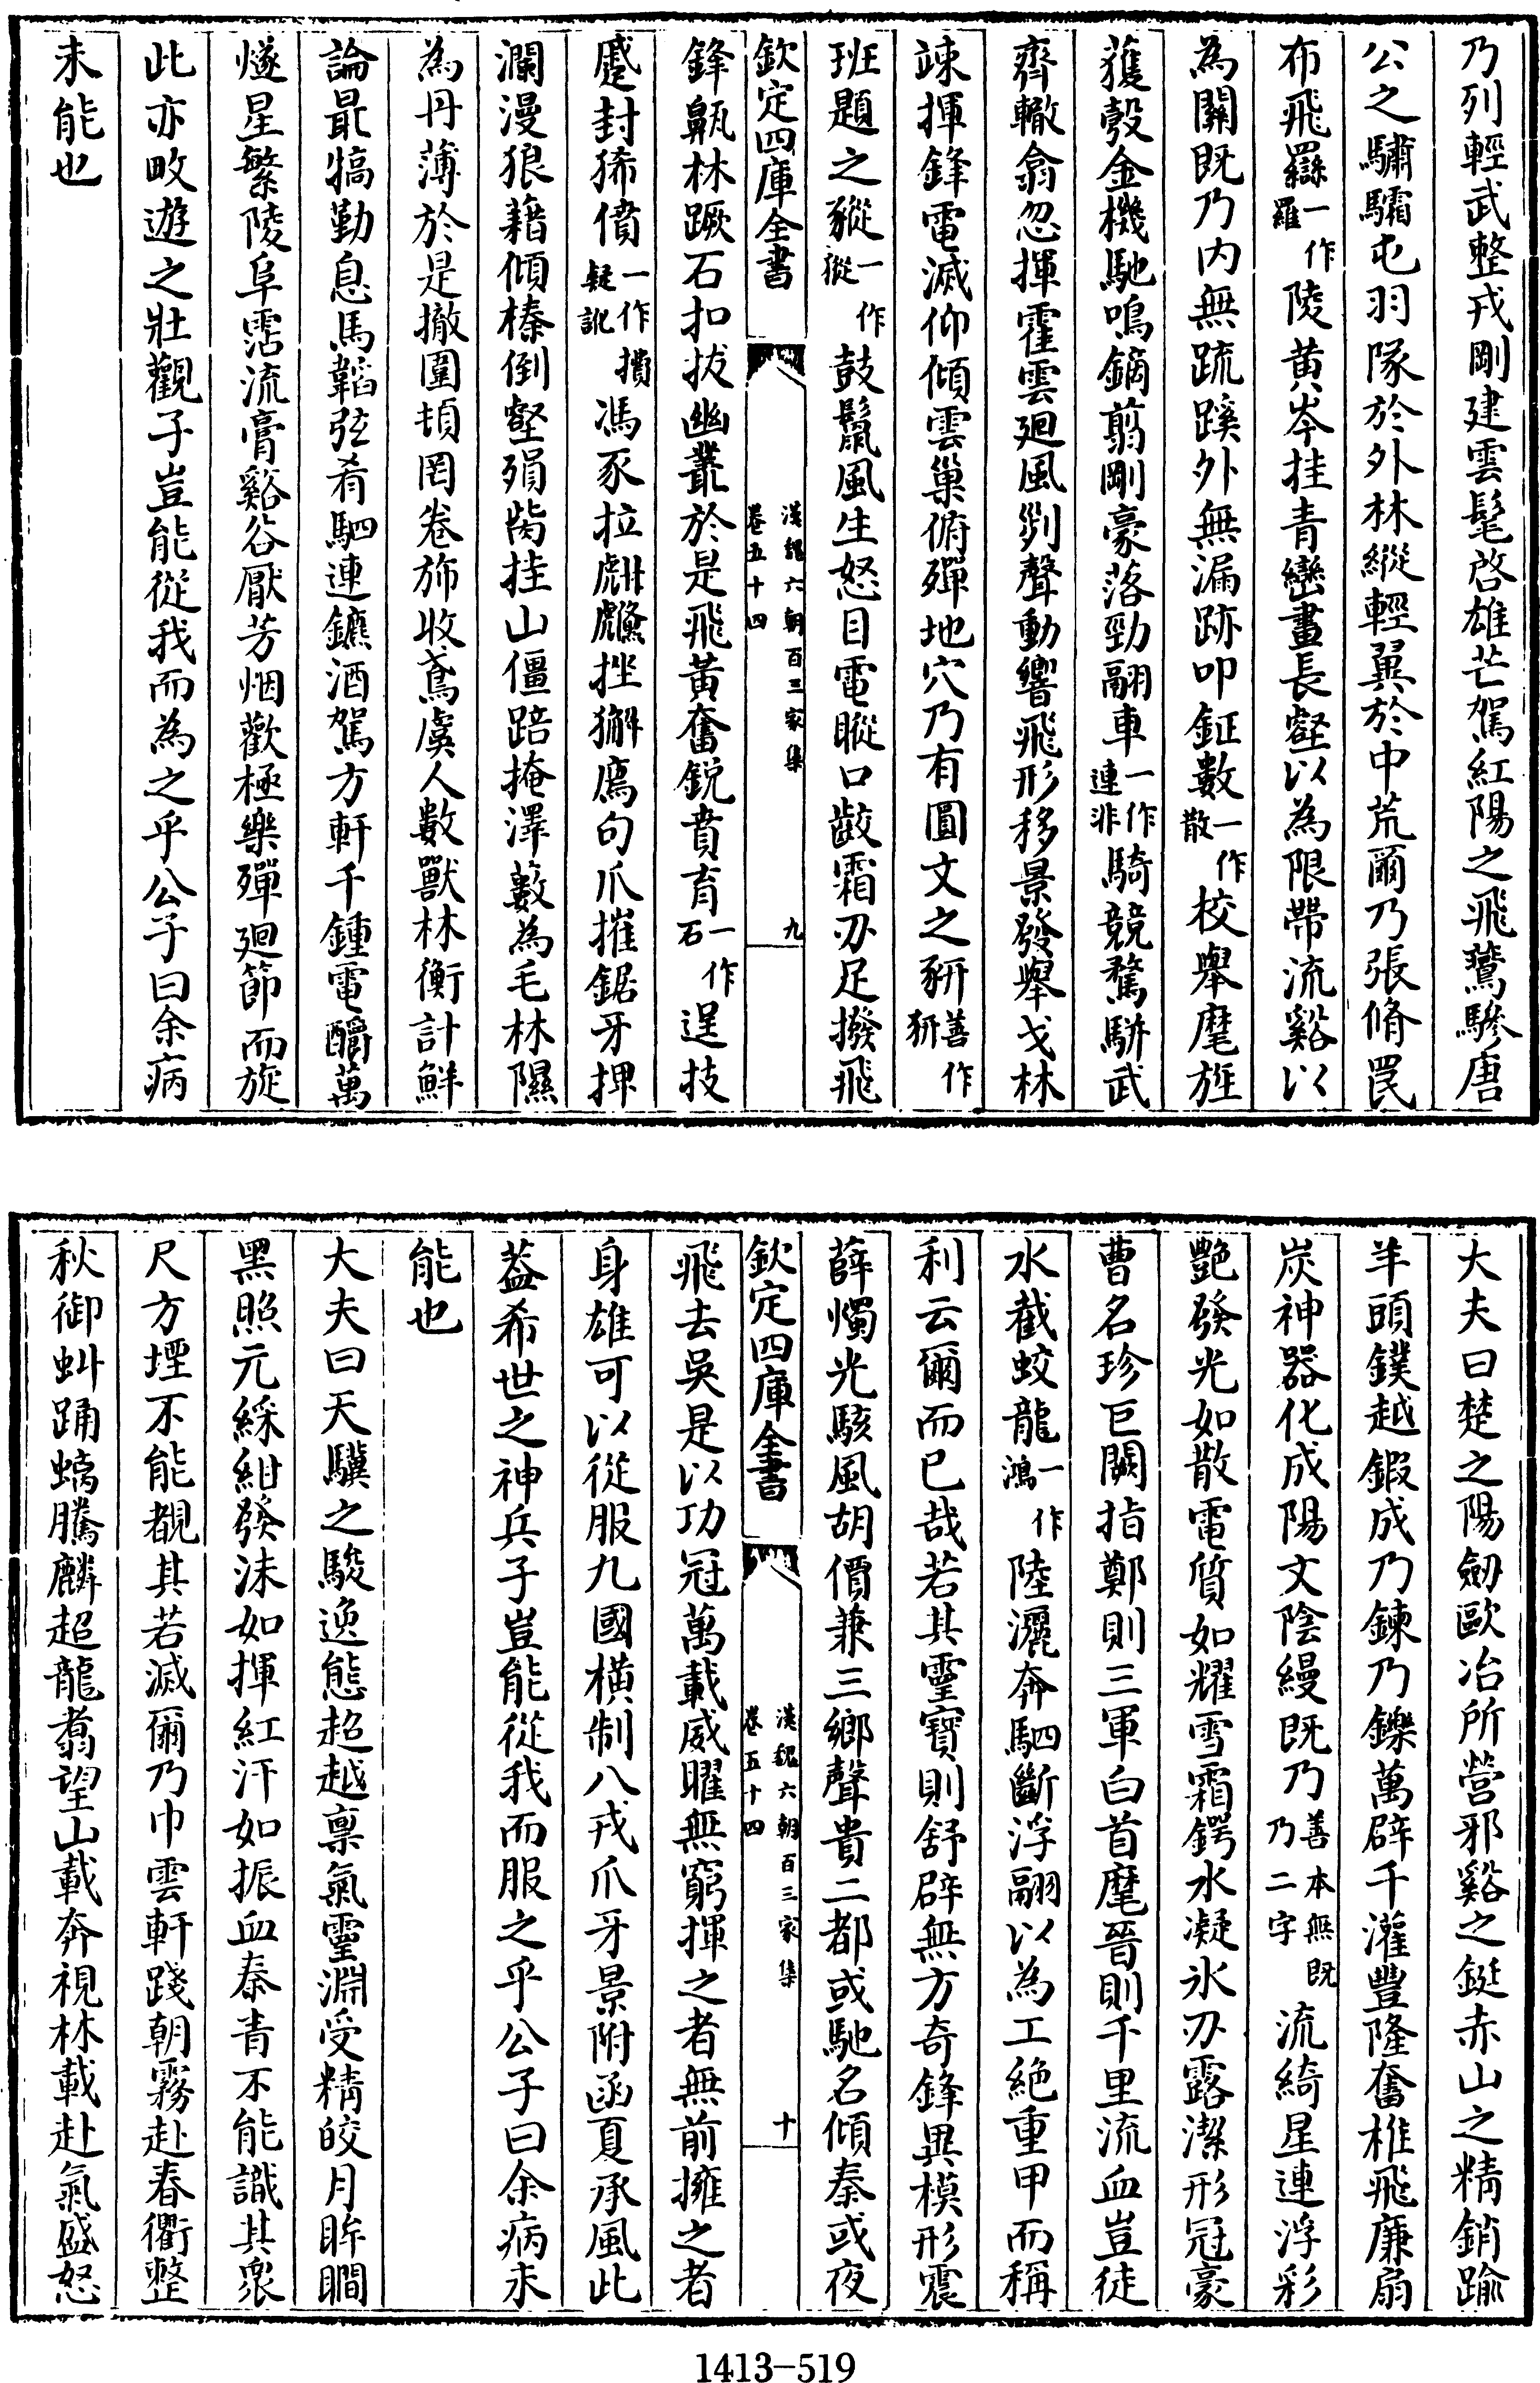 乃列輕武整戎剛建雲髦啓雄芒駕紅陽之飛鷰驂唐
公之驌驦屯羽隊於外林縱輕翼於中荒爾乃張脩罠
布飛羉一作羅陵黃岑挂青巒畫長壑以為限帶流谿以
為關既乃内無疏蹊外無漏跡叩鉦數一作散校舉麾旌
獲彀金機馳鳴鏑剪剛豪落勁翮車一作連非騎競騖駢武
齊轍翕忽揮霍雲廻風烈聲動響飛形移景發舉戈林
竦揮鋒電滅仰傾雲巢俯殫地穴乃有圓文之豜善作豣
班題之豵一作猣鼓鬣風生怒目電瞛口齩霜刃足撥飛
欽定四庫全書
漢魏六朝百三家集
卷五十四
九
鋒䶝林蹶石扣拔幽叢於是飛黃奮鋭賁育一作石逞技
蹙封狶僨一作攢疑訛馮豕拉甝虪挫獬廌句爪摧鋸牙捭
瀾漫狼藉傾榛倒壑殞胔挂山僵踣掩澤藪為毛林隰
為丹薄於是撤圍頓罔卷斾收鳶虞人數獸林衡計鮮
論最犒勤息馬韜弦肴駟連鑣酒駕方軒千鍾電釂萬
燧星繁陵阜霑流膏谿谷厭芳烟歡極樂殫廻節而旋
此亦畋遊之壯觀子豈能從我而為之乎公子曰余病
未能也
大夫曰楚之陽劒歐冶所營邪谿之鋌赤山之精銷踰
羊頭鏷越鍛成乃鍊乃鑠萬辟千灌豐隆奮椎飛廉扇
炭神器化成陽文陰縵既乃善本無既乃二字流綺星連浮彩
艷發光如散電質如耀雪霜鍔水凝氷刃露潔形冠豪
曹名珍巨闕指鄭則三軍白首麾晉則千里流血豈徒
水截蛟龍一作鴻陸灑奔駟斷浮翮以為工絶重甲而稱
利云爾而已哉若其靈寶則舒辟無方奇鋒異模形震
薛燭光駭風胡價兼三鄉聲貴二都或馳名傾秦或夜
欽定四庫全書
漢魏六朝百三家集
卷五十四
十
飛去吳是以功冠萬載威曜無窮揮之者無前擁之者
身雄可以從服九國横制八戎爪牙景附函夏承風此
蓋希世之神兵子豈能從我而服之乎公子曰余病未
能也
大夫曰天驥之駿逸態超越禀氣靈淵受精皎月眸瞷
黑照元綵紺發沫如揮紅汗如振血秦青不能識其衆
尺方堙不能覩其若滅爾乃巾雲軒踐朝霧赴春衢整
秋御虯踊螭騰麟超龍翥望山載奔視林載赴氣盛怒
1413-519